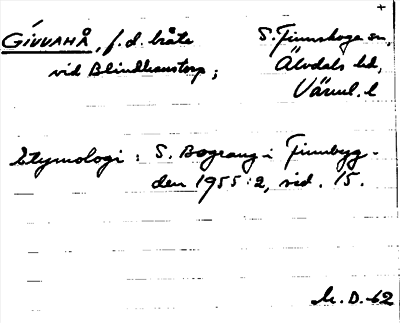 +
GÍVVAHÅ, f.d. bråte
vid Blindhanstorp;
S. Finnskoga sn,
Älvdals hd,
Värml. l
Etymologi: S. Bograng i Finnbyg-
den 1955:2, sid. 15.
M.D.-62